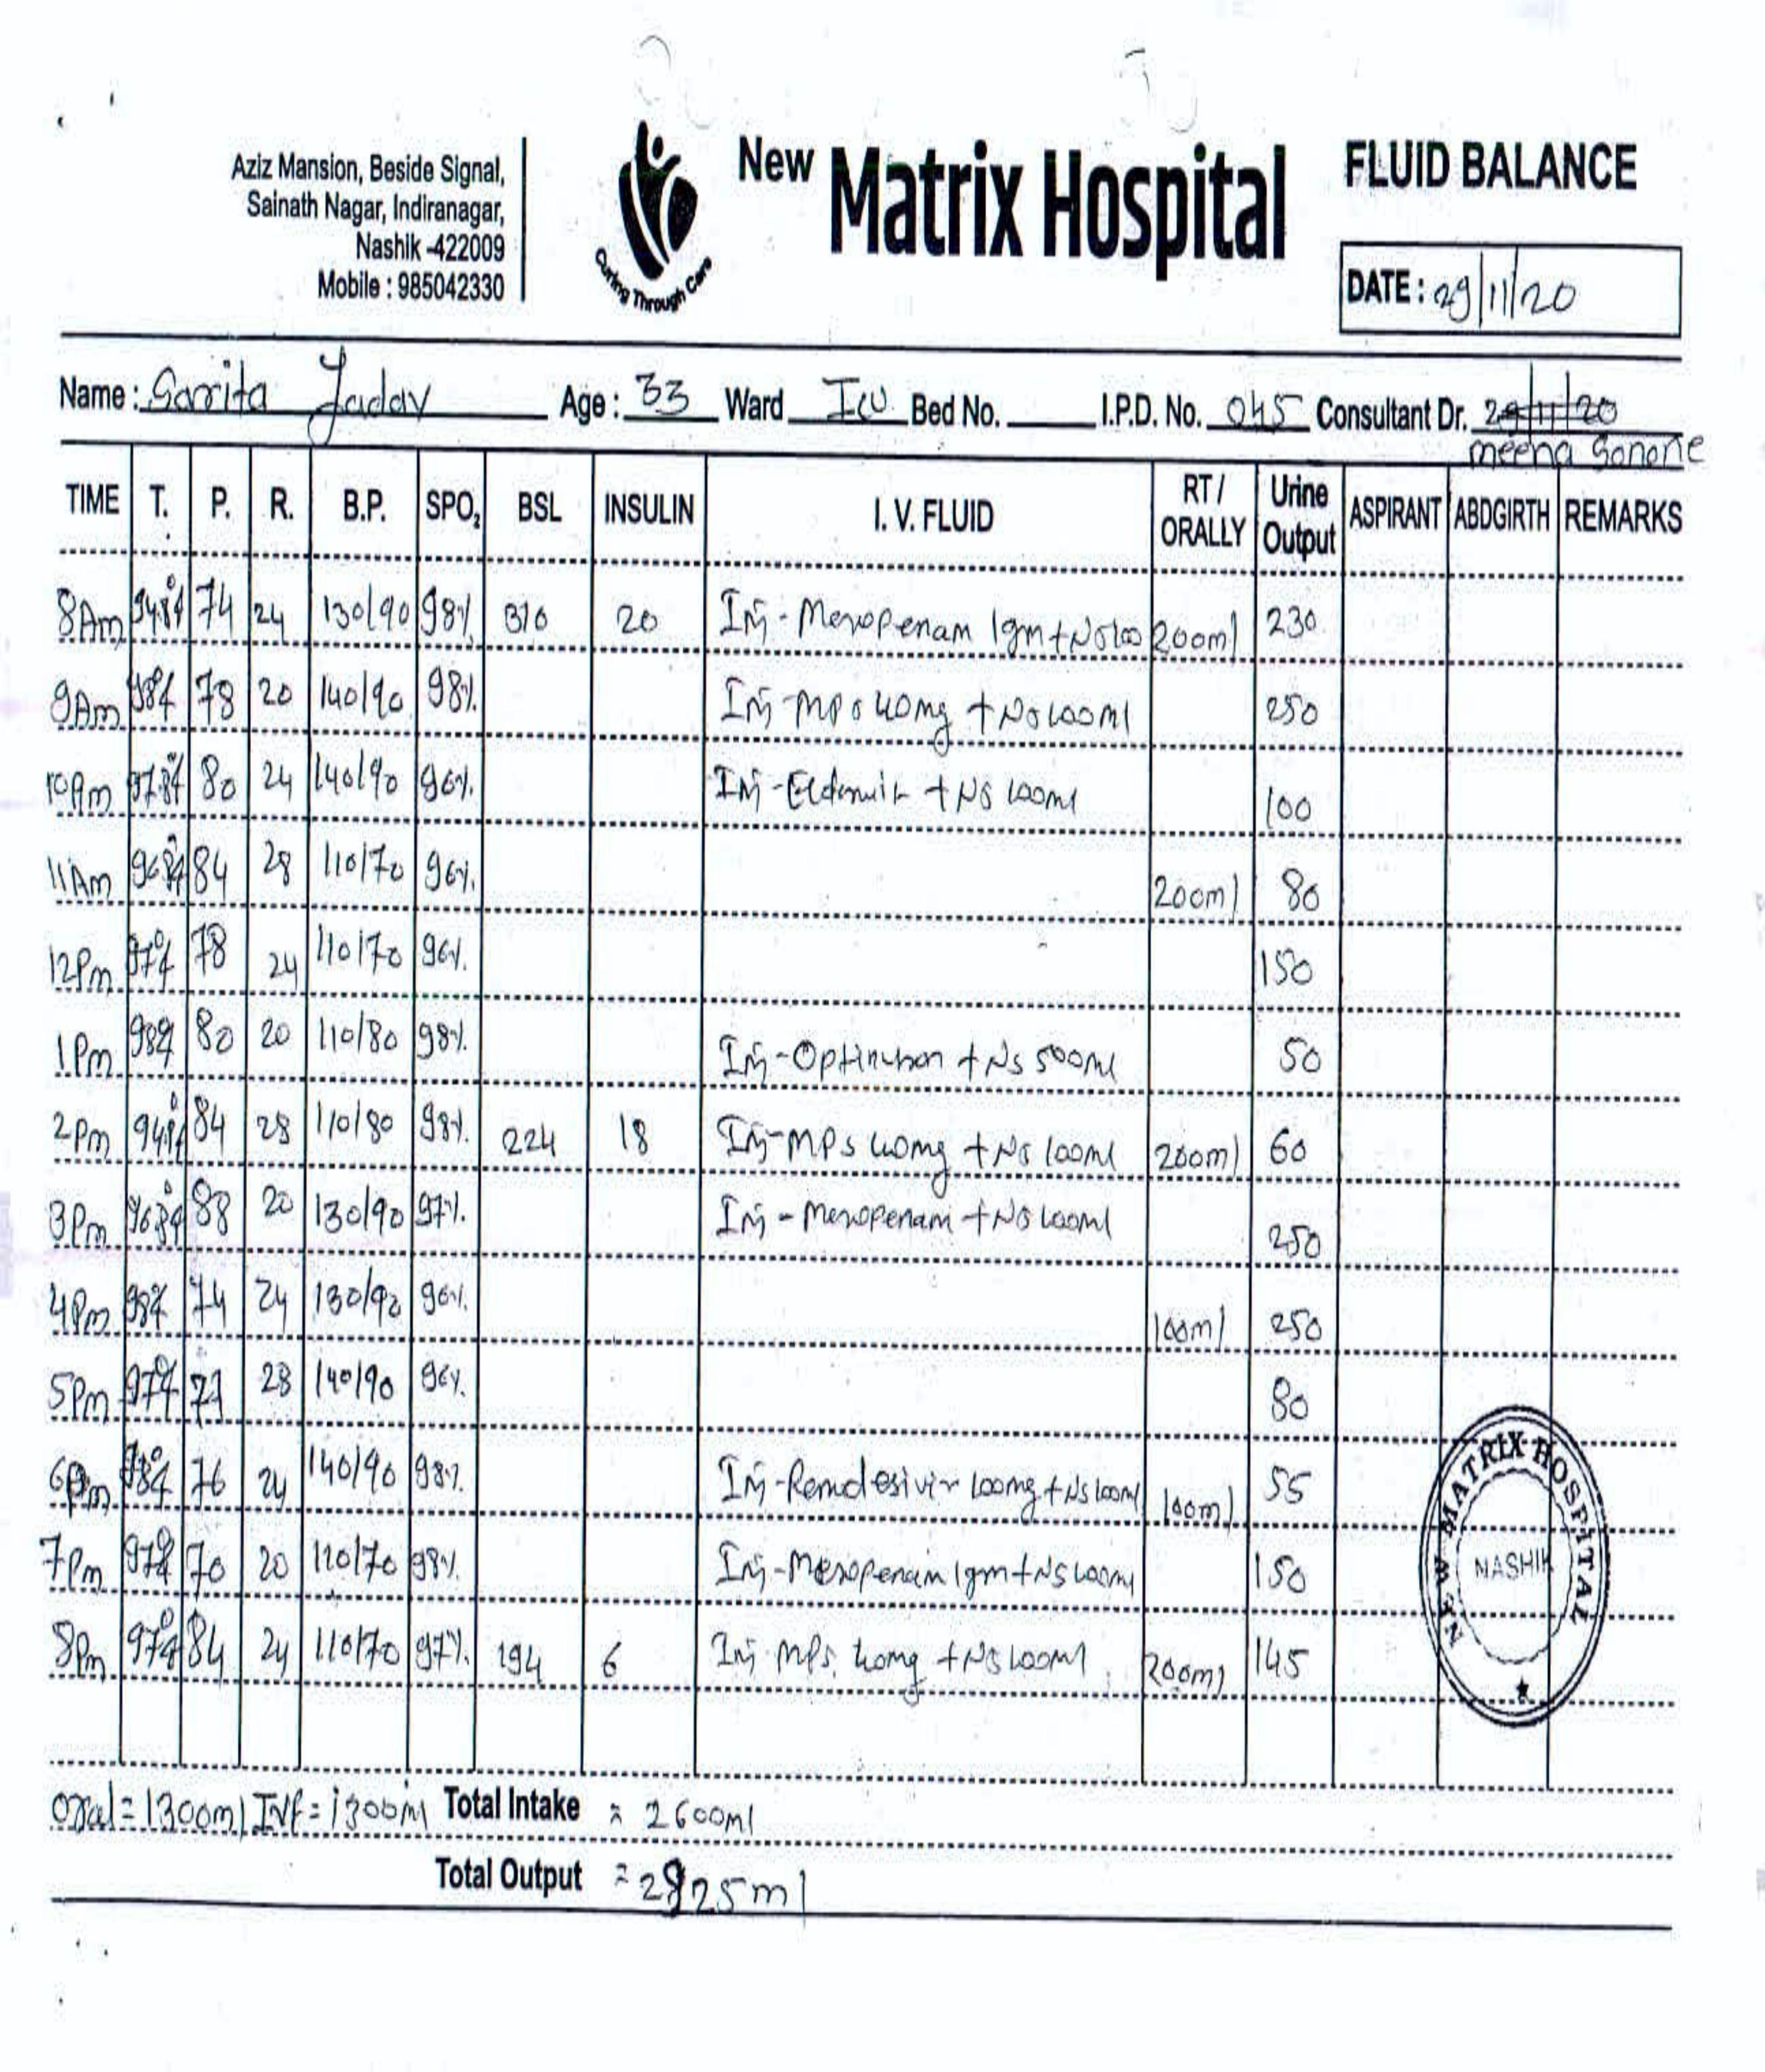 Aziz Mansion, Beside Signal,
Sainath Nagar, Indiranagar,
Nashik -422009
Mobile : 985042330
Curing Through Care
New Matrix Hospital
FLUID BALANCE
DATE : 29/11/20
Name : Sarita Jadav Age : 33 Ward ICU Bed No. I.P.D. No. 045 Consultant Dr. 29/11/20
meena Sonone
TIME T. P. R. B.P. SPO2 BSL INSULIN I. V. FLUID RT / ORALLY Urine Output ASPIRANT ABDGIRTH REMARKS
8Am 74 24 130/90 98% 310 20 Inj - Meropenam 1gm + NS 100 200ml 230
9Am 98°f 78 20 140/90 98% Inj - MPS 40mg + NS 100ml 250
10Am 80 24 140/90 96% Inj - + NS 100ml 100
11Am 84 28 110/70 96% 200ml 80
12Pm 97°f 78 24 110/70 96% 150
1Pm 98°f 80 20 110/80 98% Inj - + NS 500ml 50
2Pm 84 28 110/80 98% 224 18 Inj - MPS 40mg + NS 100ml 200ml 60
3Pm 88 20 130/90 97% Inj - Meropenam + NS 100ml 250
4Pm 98°f 74 24 130/90 96% 100ml 250
5Pm 97°f 28 140/90 96% 80
6Pm 98°f 76 24 140/90 98% Inj - Remdesivir 100mg + NS 100ml 100ml 55
7Pm 97°f 70 20 120/70 98% Inj - Meropenam 1gm + NS 100ml 150
8Pm 97°f 84 24 110/70 97% 194 6 Inj MPS 40mg + NS 100ml 200ml 145
NEW MATRIX HOSPITAL
NASHIK
Oral = 1300ml IVF = 1300ml Total Intake = 2600ml
Total Output = 2825ml